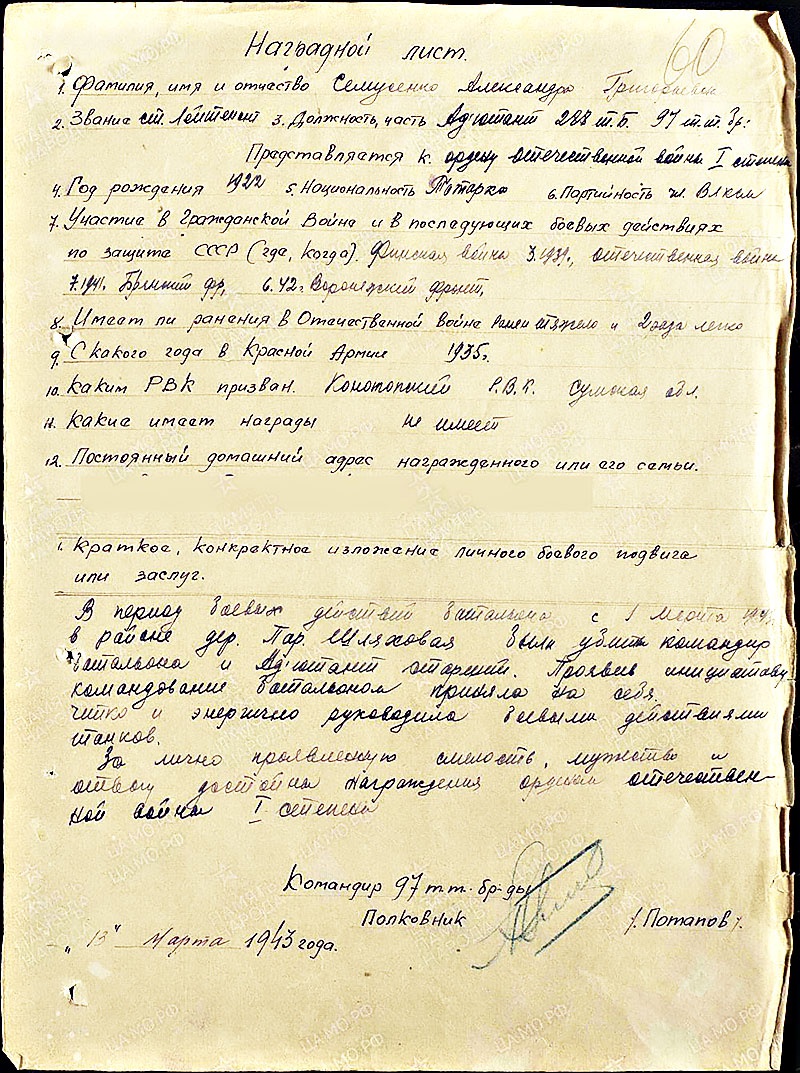 60
Наградной лист.
1. Фамилия, имя и отчество Семусенко Александра Григорьевна
2. Звание ст. Лейтенант 3. Должность, часть Адъютант 288 т.б. 97 т.т. бр:
Представляется к ордену отечественной войны I степени
4. Год рождения 1922 5. Национальность Татарка 6. Партийность чл. ВЛКСМ
7. Участие в Гражданской Война и в последующих боевых действиях
по защита СССР (гда, когда). Финская война 3.1939г., отечественная война
7.1941. Брянский фр, 6.42г. Воронежский фронт,
8. Имеат ли ранения в Отачественной война Ранен тяжело и 2 раза легко
9. С какого года в Красной Армие 1935г.
10. Каким РВК призван. Конотопский Р.В.К. Сумская обл.
11. Какиа имает награды не имеет
12. Постоянный домашний адрас награжденного или аго самьи.
1. Краткоа, конкрактноа изложания личного боевого подвига
или заслуг.
В период боевых действий батальона с 1 марта
в районе дер. Пар. Шляховая были убиты командир
батальона и Адъютант старший. Проявив инициативу
командование батальоном приняла на себя.
Чётко и энергично руководила боевыми действиями
танков.
За лично проявленую смелость, мужество и
отвагу достойна награждения орденом отечествен-
ной войны I степени
Командир 97 т.т. бр-ды
Полковник /Потапов/.
"13" Марта 1943 года.
ЦАМО.РФ